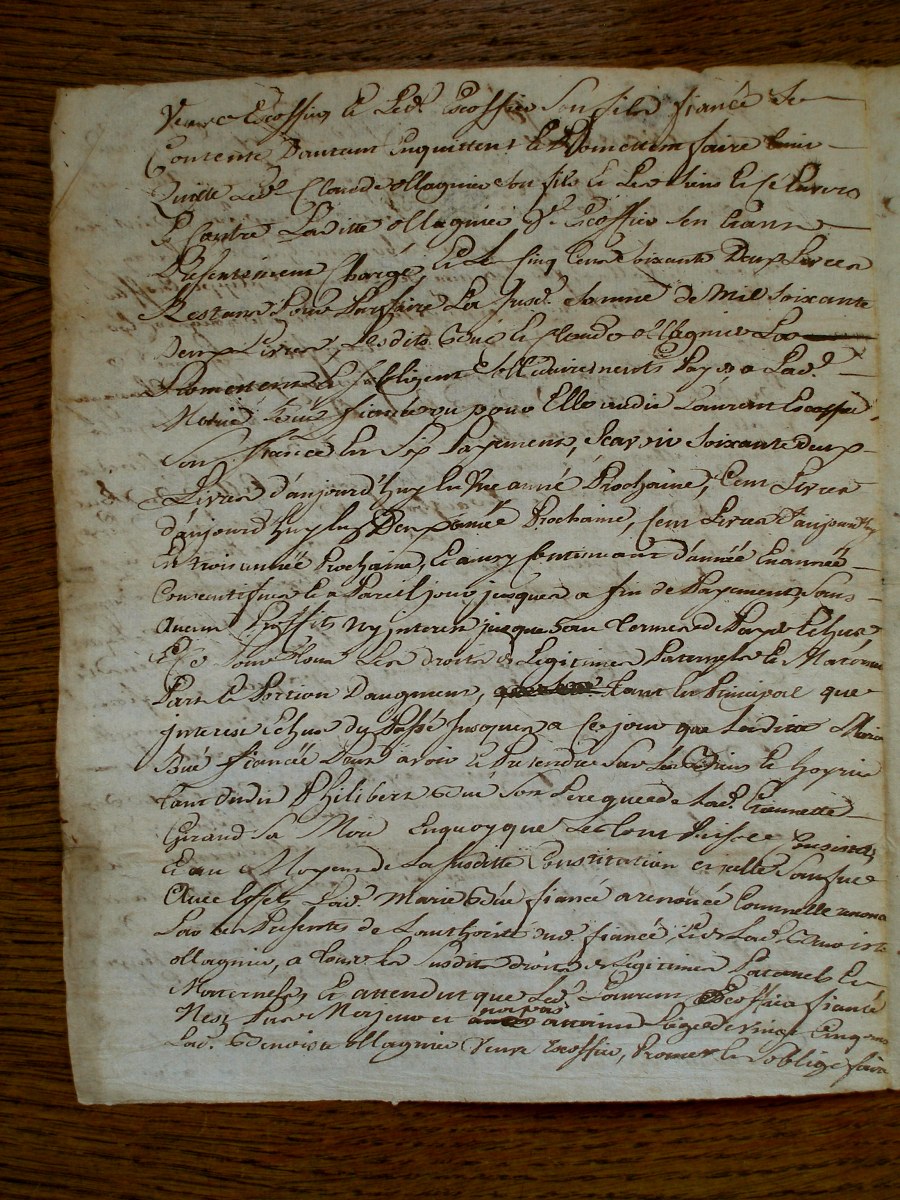 Veuve Escoffier Et Led.t Escoffier Son fils fiancé Se
Contente D'autant Enquittent Et Promettent faire tenir
Quitte Led.t Claude ollagnier Son fils Et Les Siens Et Se Envers
Et Contre Laditte ollagnier V.e Escoffier Sen
Presentement Chargé, Et Les Cinq Cent Soixante Deux Livres
Restant Pour Parfaire La Susd. Somme de Mil Soixante
Deux Livres, Lesdits Et Claude ollagnier Les
Promettent Et S'obligent Sollidairement Payer a Lad.
Marie fiancée ou pour Elle audit Laurent Escoffier,
Son fiancé En Six Payements, Scavoir Soixante deux
Livres d'aujourd'huy En Une année Prochaine, Cent Livres
d'aujourd'huy En Deux année Prochaine, Cent Livres d'aujourd'huy
En trois année Prochaine, Et ainsy Continuant d'année En année
Consecutifvue Et a Pareil jour, jusques a fin de Payement, Sans
Aucun Proffits ny interest jusques au termes de Paye Echus
Et Ce Pour tous Les droits Et Legitimes Paternels Et Maternels
Part Et Portion D'augment, tant En Principal que
interest Echus du Passé Jusques a Ce jour que Laditte Marie
fiancée Peut avoir Et Pretendre Sur Les Biens Et hoyrie
tant dudit Philibert Son Pere que de Lad. Pierrette
Girand Sa Mere Enquoy que Le tout Puisse Consister,
Et au Moyen de La Susditte Constitution
Lad. Marie fiancé a renoncé Comme Elle renonce
Par Ces Presentes de L'authorité dud. fiancé, Et de Lad. Benoiste
ollagnier, a tous Les Susdits droits Et Legitimes Paternels Et
Maternels, Et attendu que Led.t Laurent Escoffier fiancé
Nest Pas Majeur et na pas atteint L'age de vingt Cinq ans
Lad. Benoiste ollagnier Veuve Escoffier, Promet Et S'oblige faire